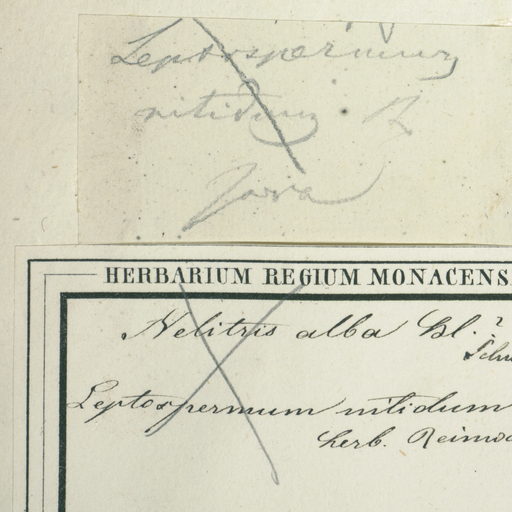 Leptospermum
nitidum R
Java
HERBARIUM REGIUM MONACENS
Nelitris alba Bl.?
Leptospermum nitidum
herb. Reinw